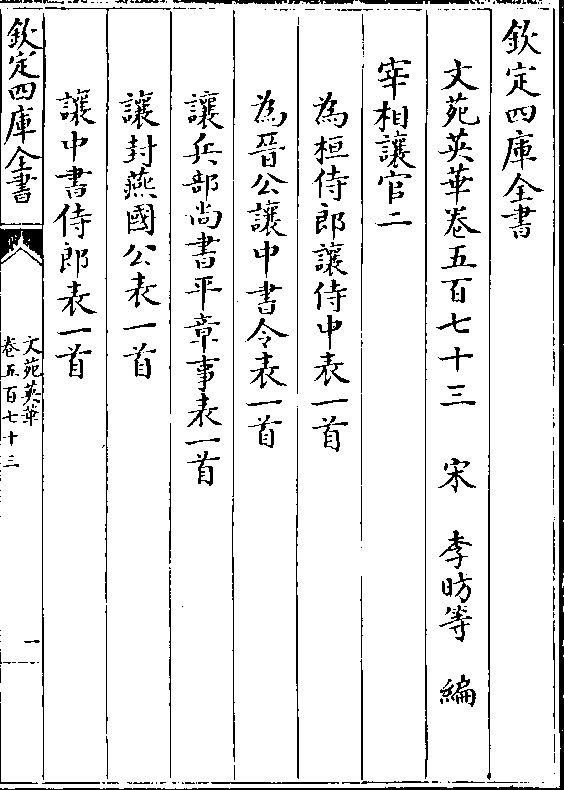 欽定四庫全書
文苑英華卷五百七十三　宋　李昉等　編
宰相讓官二
為桓侍郎讓侍中表一首
為晉公讓中書令表一首
讓兵部尚書平章事表一首
讓封燕國公表一首
讓中書侍郎表一首
欽定四庫全書
文苑英華
卷五百七十三
一